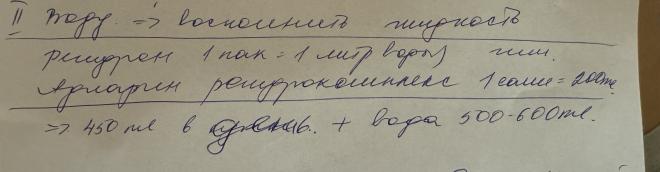 II Воду. => восполнить жидкость
регидрон 1 пак = 1 литр воды) или.
регидрокомплекс 1 саше = 200мл
=> 450 мл в день. + вода 500-600мл.